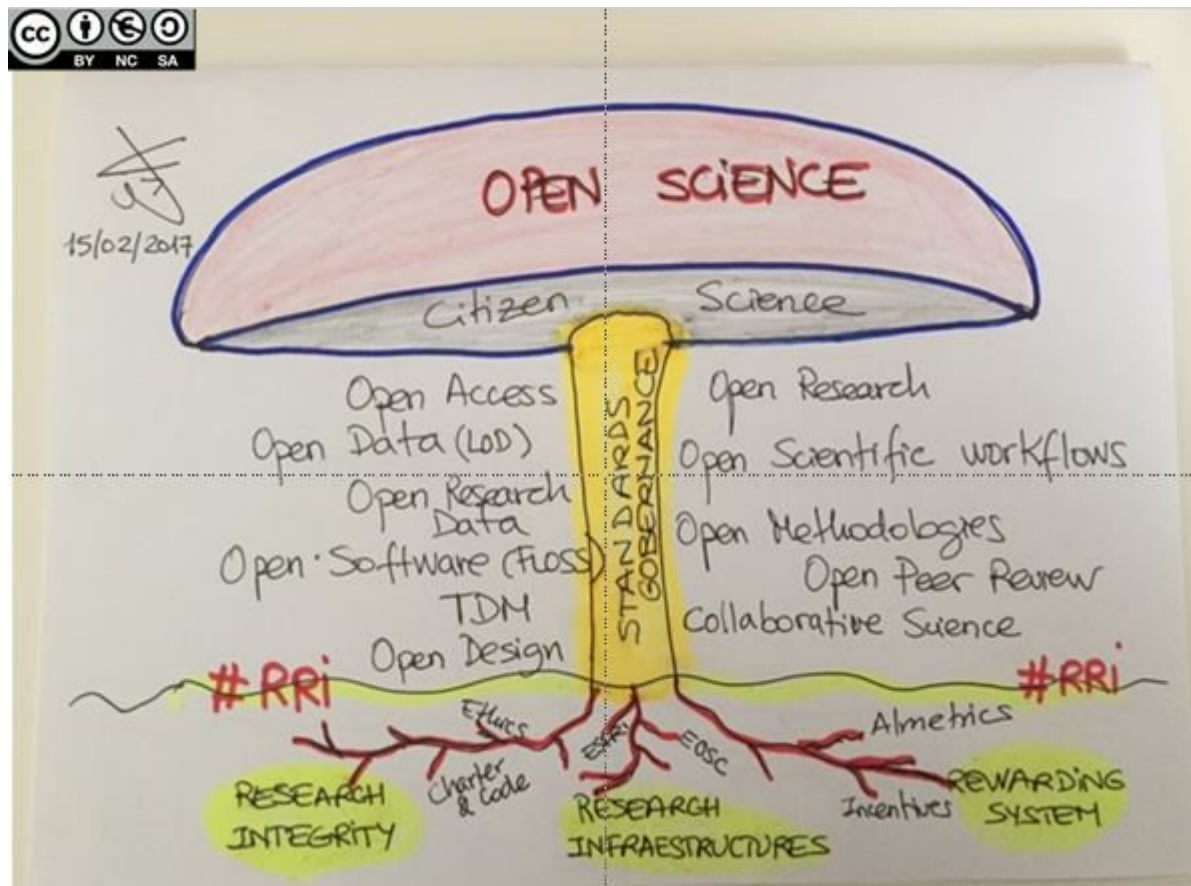 CC
BY NC SA
15/02/2017
OPEN SCIENCE
Citizen Science
STANDARDS
GOBERNANCE
Open Access
Open Data (LOD)
Open Research
Data
Open Software (FLOSS)
TDM
Open Design
Open Research
Open Scientific workflows
Open Methodologies
Open Peer Review
Collaborative Science
#RRi
#RRi
Ethics
Charter
& Code
RESEARCH
INTEGRITY
ESFRi
EOSC
RESEARCH
INFRAESTRUCTURES
Almetrics
Incentives
REWARDING
SYSTEM